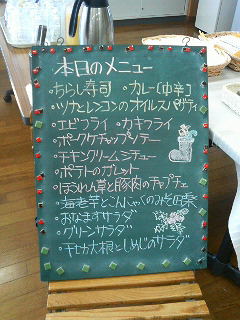 本日のメニュー
・ちらし寿司 ・カレー[中辛]
・ツナとレンコンのオイルスパゲティ
・エビフライ ・カキフライ
・ポークケチャップソテー
・チキンクリームシチュー
・ポテトのガレット
・ほうれん草と豚肉のチャプチェ
・海老芋とこんにゃくのみそ田楽
・おなますサラダ
・グリーンサラダ
・干し大根としめじのサラダ